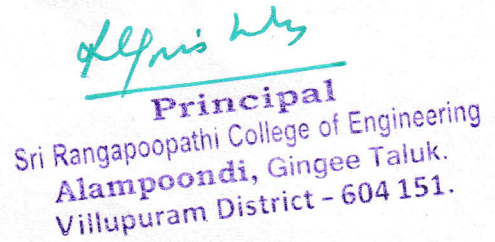 Principal
Sri Rangapoopathi College of Engineering
Alampoondi, Gingee Taluk.
Villupuram District - 604 151.